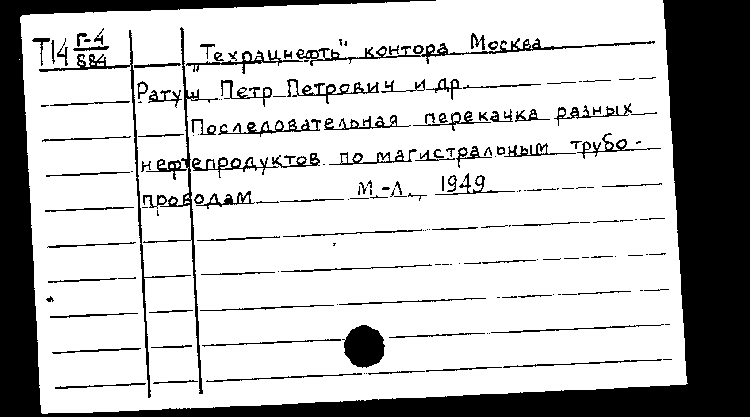 Т14 Г-4/884
„Техрацнефть", контора. Москва.
Ратуш, Петр Петрович и др.
Последовательная перекачка разных
нефтепродуктов по магистральным трубо-
проводам. М.-Л., 1949.